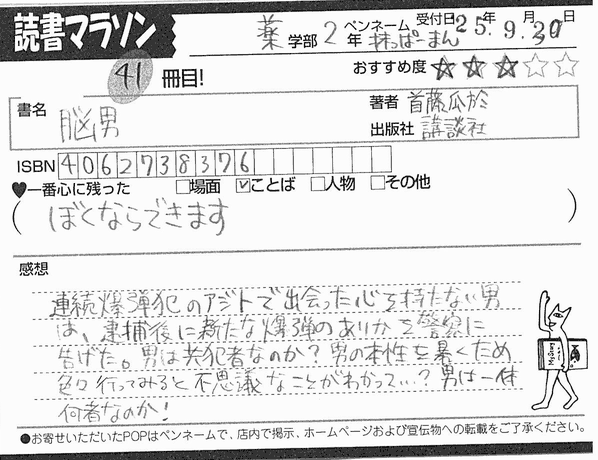 読書マラソン
薬 学部 2 年 ペンネーム 抹っぱーまん 受付日 25年 9.月30日
41 冊目!
おすすめ度 ★★★☆☆
書名 脳男
著者 首藤瓜於
出版社 講談社
ISBN 4062738376
♥一番心に残った □場面 ☑ことば □人物 □その他
(ぼくならできます)
感想
連続爆弾犯のアジトで出会った心を持たない男
は、逮捕後に新たな爆弾のありかを警察に
告げた。男は共犯者なのか?男の本性を暴くため
色々行ってみると不思議なことがわかって…?男は一体
何者なのか!
●お寄せいただいたPOPはペンネームで、店内で掲示、ホームページおよび宣伝物への転載をご了承ください。